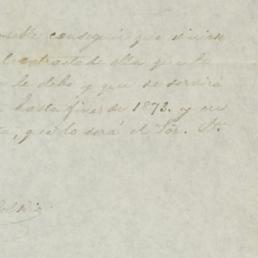 posible conseguir que vinien
el extracto de ella que le
le debe y que se servirá
hasta fines de 1873. y en
que lo será el Sor. Dt.